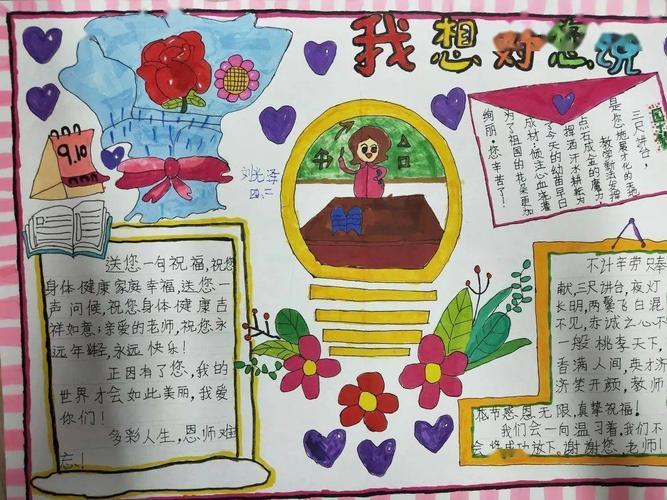 我想对您说
9.10
刘光泽
四、二
三尺讲台,
是您施展才化的
教学新法发挥
点石成金的魔力,
挥洒汗水耕耘为
了今天的幼苗早日
成材;倾注心血浇灌
为了祖国的花朵更加
绚丽,您辛苦了!
送您一句祝福,祝您
身体健康家庭幸福,送您一
声问候,祝您身体健康吉
祥如意;亲爱的老师,祝您永
远年轻,永远快乐!
正因有了您,我的
世界才会如此美丽,我爱
你们!
多彩人生,恩师难
忘!
不计辛劳只奉
献,三尺讲台,夜灯
长明,两鬓飞白混
不见,赤诚之心不
一般 桃李天下,
香满人间,英才济
济笑开颜,教师
节感恩无限,真挚祝福!
我们会一向温习着,我们不
会将成功放下,谢谢您,老师!